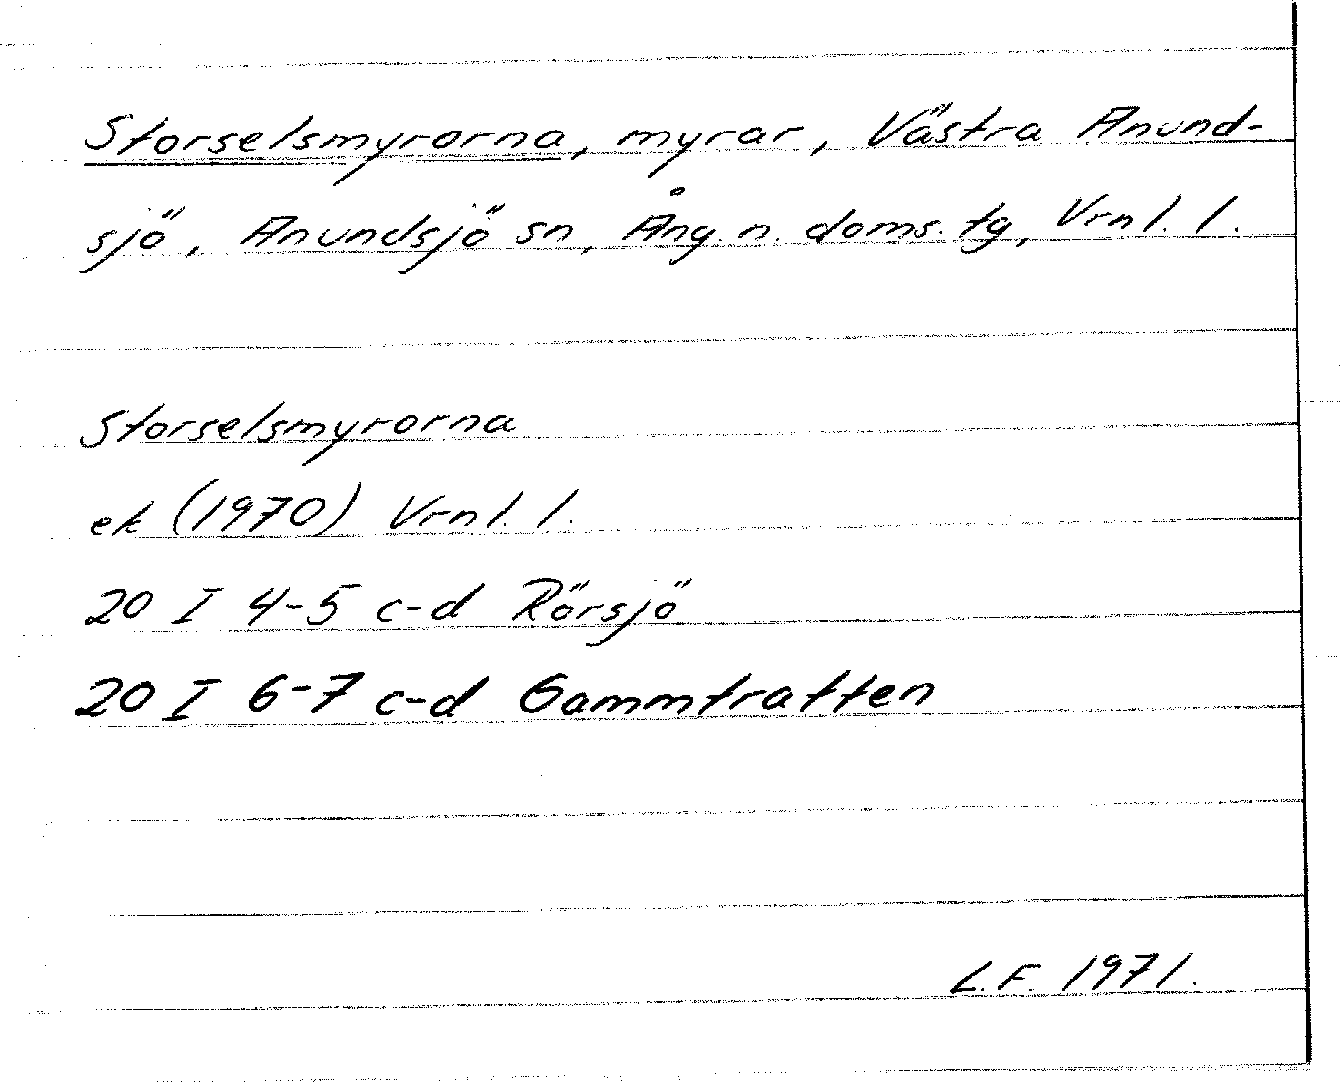 Storselsmyrorna, myrar, Västra Anund-
sjö, Anundsjö sn, Ång. n. doms. tg, Vrnl. l.
Storselsmyrorna
ek (1970) Vrnl. l.
20 I 4-5 c-d Rörsjö
20 I 6-7 c-d Gammtratten
L.F. 1971.